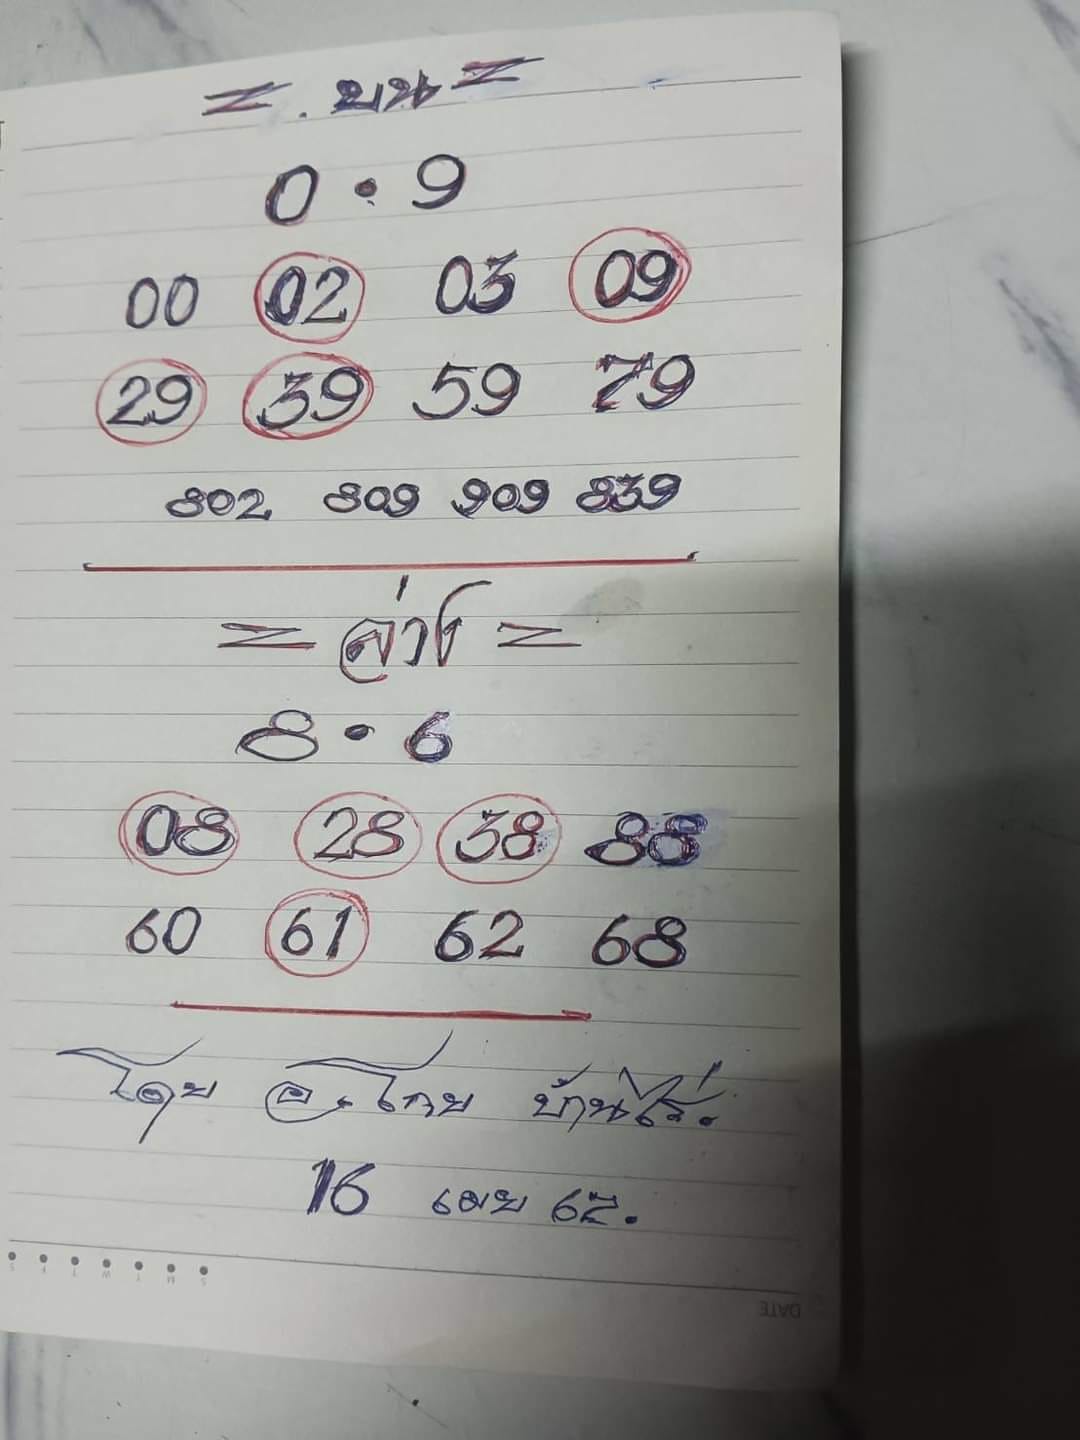 = . บน =
0 • 9
00 02 03 09
29 39 59 79
802 809 909 839
= ล่าง =
8 • 6
08 28 38 88
60 61 62 68
โดย อ. โกย บ้านไร่.
16 เมย 65.
S F T W T M S
DATE